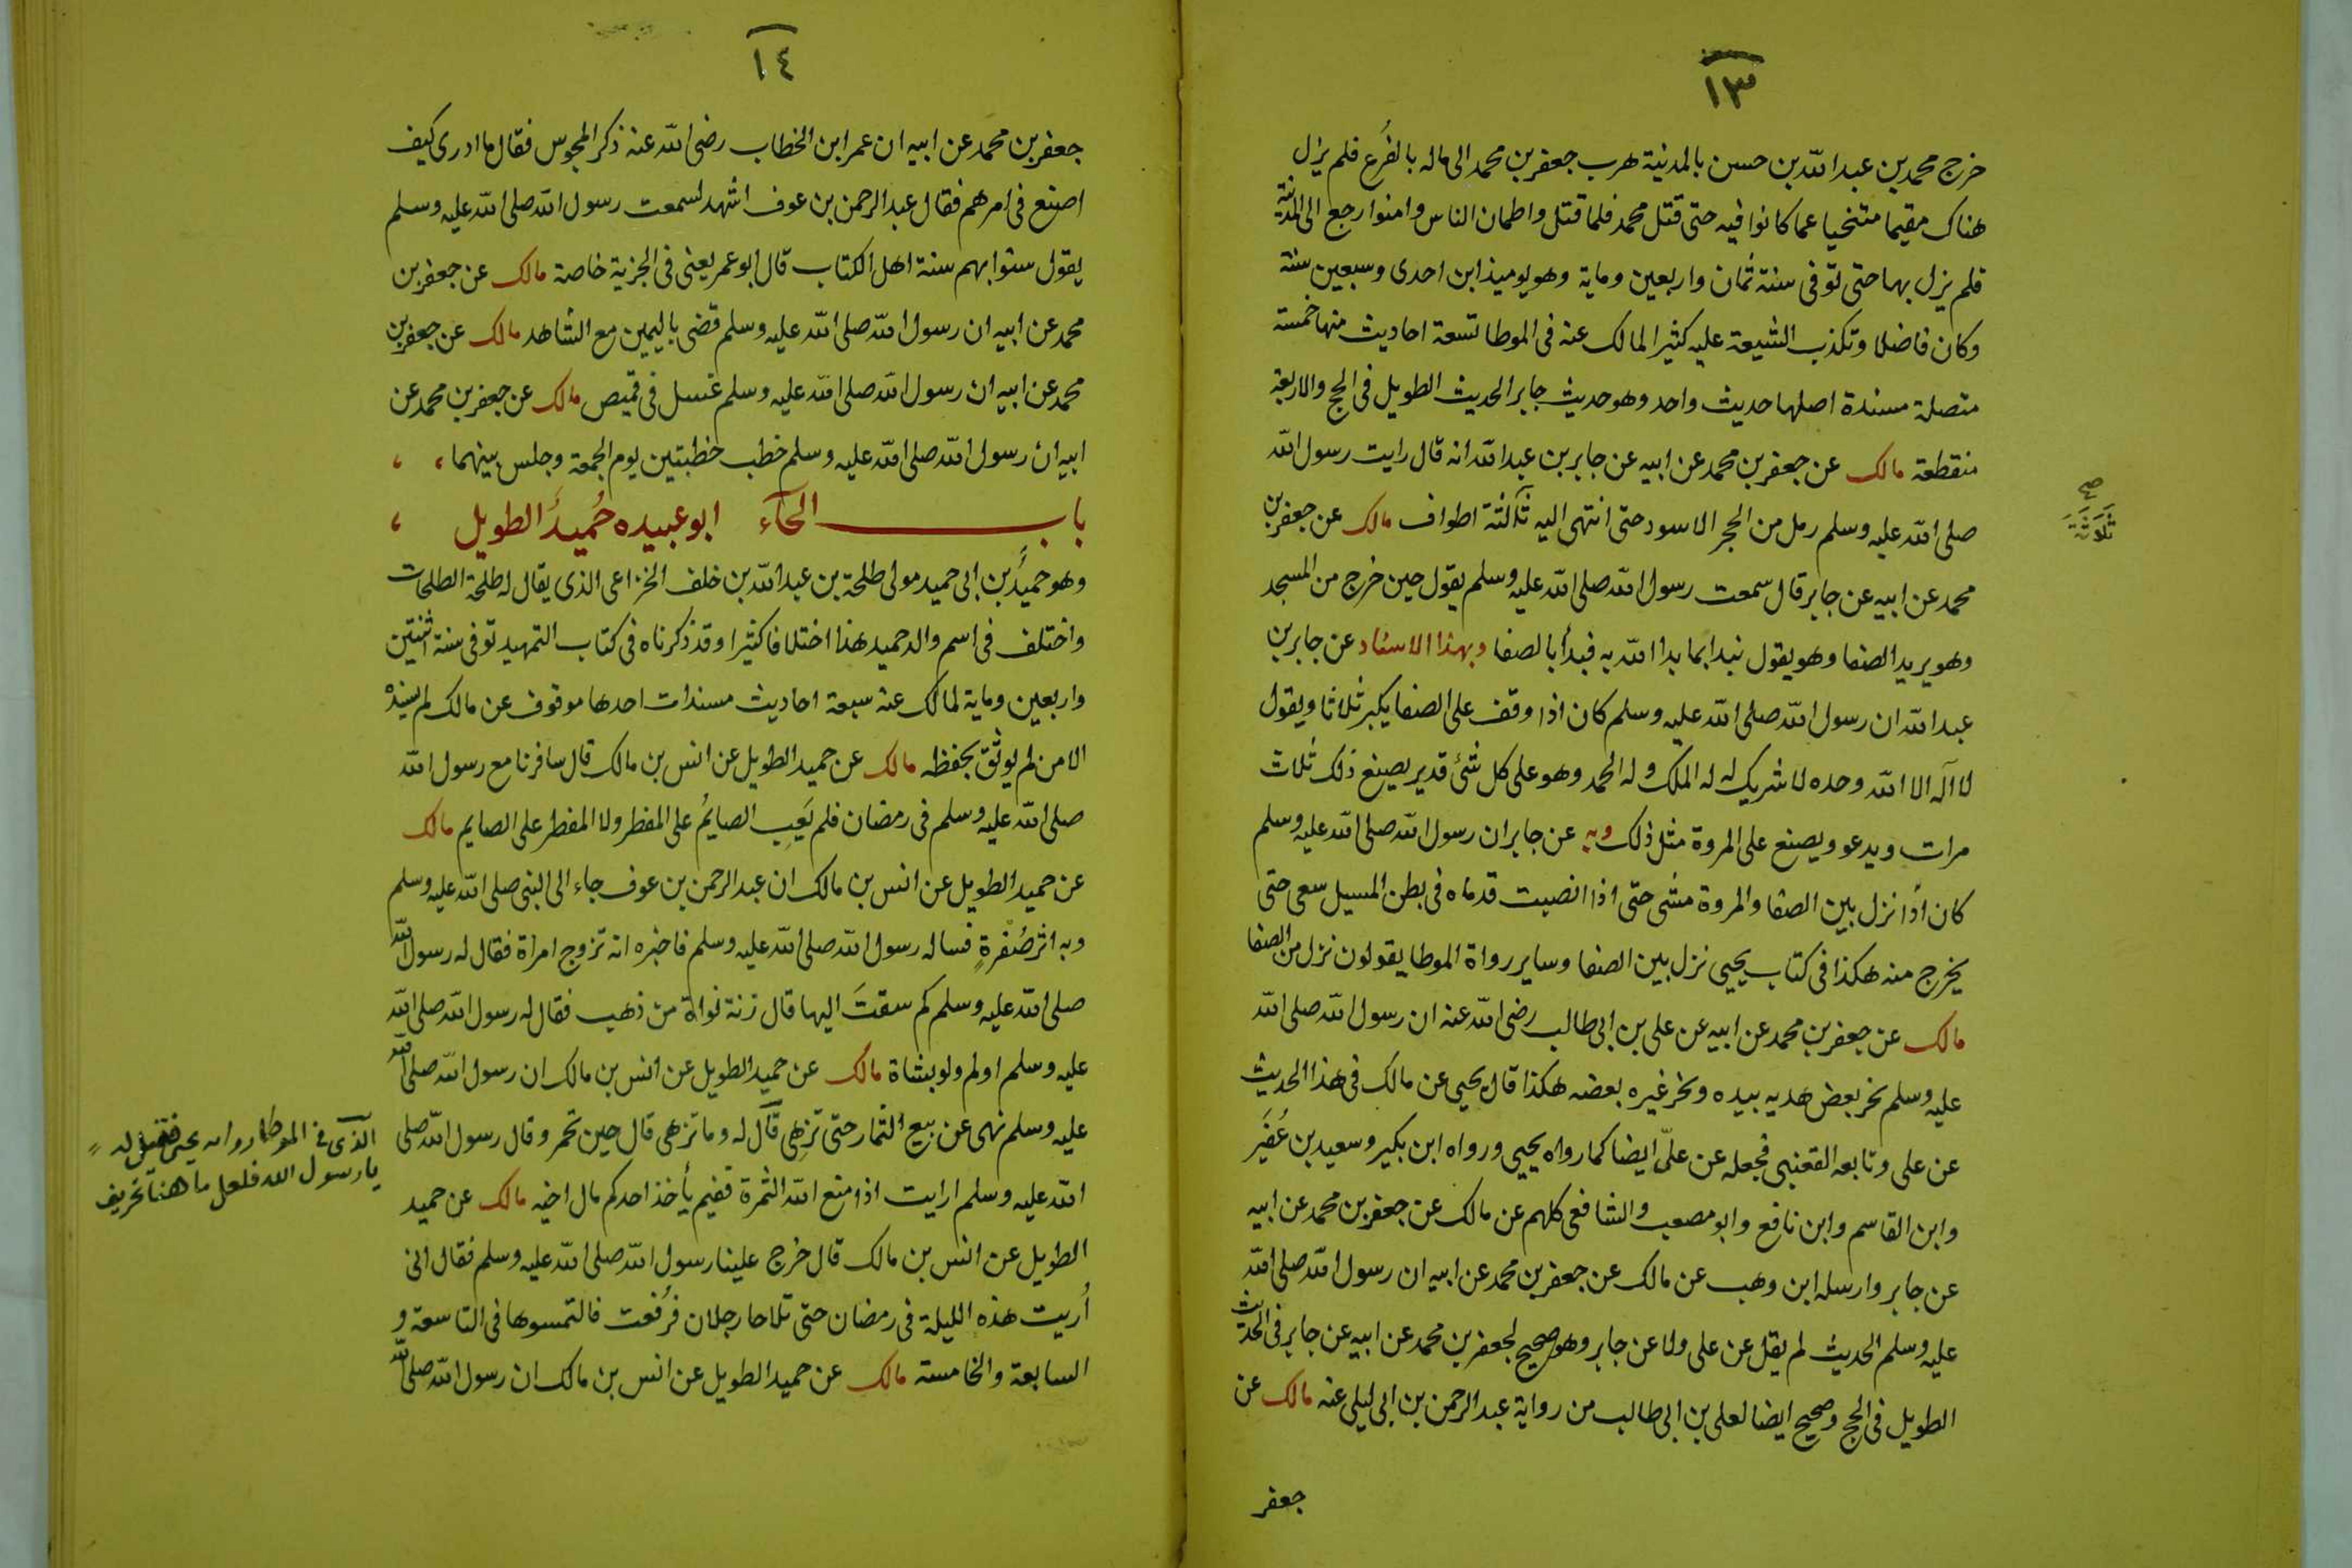 ١٣
خرج محمد بن عبد الله بن حسن بالمدينة هرب جعفر بن محمد الى ماله بالفُرع فلم يزل
هناك مقيما متنحيا عما كانوا فيه حتى قتل محمد فلما قتل واطمان الناس وامنوا رجع الى المدينة
فلم يزل بها حتى توفى سنة ثمان واربعين وماية وهو يوميذ ابن احدى وسبعين سنة
وكان فاضلا وتكذب الشيعة عليه كثيرا لمالك عنه فى الموطا تسعة احاديث منها خمسة
متصلة مسندة اصلها حديث واحد وهو حديث جابر الحديث الطويل فى الحج والاربعة
منقطعة مالك عن جعفر بن محمد عن ابيه عن جابر بن عبد الله انه قال رايت رسول الله
صلى الله عليه وسلم رمل من الحجر الاسود حتى انتهى اليه ثلثة اطواف مالك عن جعفر بن
صح
ثَلَاثَة
محمد عن ابيه عن جابر قال سمعت رسول الله صلى الله عليه وسلم يقول حين خرج من المسجد
وهو يريد الصفا وهو يقول نبدا بما بدا الله به فبدأ بالصفا وبهذا الاسناد عن جابر بن
عبد الله ان رسول الله صلى الله عليه وسلم كان اذا وقف على الصفا يكبر ثلاثا ويقول
لا اله الا الله وحده لا شريك له له الملك وله الحمد وهو على كل شئ قدير يصنع ذلك ثلاث
مرات ويدعو ويصنع على المروة مثل ذلك وبه عن جابر ان رسول الله صلى الله عليه وسلم
كان اذا نزل بين الصفا والمروة مشى حتى اذا انصبت قدماه فى بطن المسيل سعى حتى
يخرج منه هكذا فى كتاب يحيى نزل بين الصفا وساير رواة الموطا يقولون نزل من الصفا
مالك عن جعفر بن محمد عن ابيه عن على بن ابى طالب رضى الله عنه ان رسول الله صلى الله
عليه وسلم نحر بعض هديه بيده ونحر غيره بعضه هكذا قال يحيى عن مالك فى هذا الحديث
عن على وتابعه القعنبى فجعله عن علىّ ايضا كما رواه يحيى ورواه ابن بكير وسعيد بن عُفَير
وابن القاسم وابن نافع وابو مصعب والشافعى كلهم عن مالك عن جعفر بن محمد عن ابيه
عن جابر وارسله ابن وهب عن مالك عن جعفر بن محمد عن ابيه ان رسول الله صلى الله
عليه وسلم الحديث لم يقل عن على ولا عن جابر وهو صحيح لجعفر بن محمد عن ابيه عن جابر فى الحديث
الطويل فى الحج وصحيح ايضا لعلى بن ابى طالب من رواية عبد الرحمن بن ابى ليلى عنه مالك عن
جعفر
١٤
جعفر بن محمد عن ابيه ان عمر ابن الخطاب رضى الله عنه ذكر المجوس فقال ما ادرى كيف
اصنع فى امرهم فقال عبد الرحمن بن عوف اشهد لسمعت رسول الله صلى الله عليه وسلم
يقول سنوا بهم سنة اهل الكتاب قال ابو عمر يعنى فى الجزية خاصة مالك عن جعفر بن
محمد عن ابيه ان رسول الله صلى الله عليه وسلم قضى باليمين مع الشاهد مالك عن جعفر بن
محمد عن ابيه ان رسول الله صلى الله عليه وسلم غسل فى قميص مالك عن جعفر بن محمد عن
ابيه ان رسول الله صلى الله عليه وسلم خطب خطبتين يوم الجمعة وجلس بينهما ، ،
باب الحآء ابو عبيده حُميد الطويل ،
وهو حميد بن ابى حميد مولى طلحة بن عبد الله بن خلف الخزاعى الذى يقال له طلحة الطلحات
واختلف فى اسم والد حميد هذا اختلافا كثيرا وقد ذكرناه فى كتاب التمهيد توفى سنة اثنتين
واربعين وماية لمالك عنه سبعة احاديث مسندات احدها موقوف عن مالك لم يسنده
الا من لم يوثق بحفظه مالك عن حميد الطويل عن انس بن مالك قال سافرنا مع رسول الله
صلى الله عليه وسلم فى رمضان فلم يَعِبِ الصايمُ على المفطر ولا المفطر على الصايم مالك
عن حميد الطويل عن انس بن مالك ان عبد الرحمن بن عوف جاء الى النبى صلى الله عليه وسلم
وبه اثر صُفرةٍ فساله رسول الله صلى الله عليه وسلم فاخبره انه تزوج امراة فقال له رسول الله
صلى الله عليه وسلم كم سقتَ اليها قال زنة نواة من ذهب فقال له رسول الله صلى الله
عليه وسلم اولم ولو بشاة مالك عن حميد الطويل عن انس بن مالك ان رسول الله صلى الله
عليه وسلم نهى عن بيع الثمار حتى تزهى قال له وما تزهى قال حين تحمر وقال رسول الله صلى
الذى فى الموطا رواية يحيى فقيل له
يا رسول الله فلعل ما هنا تحريف
الله عليه وسلم ارايت اذا منع الله الثمرة ففيم يأخذ احدكم مال اخيه مالك عن حميد
الطويل عن انس بن مالك قال خرج علينا رسول الله صلى الله عليه وسلم فقال انى
أُريت هذه الليلة فى رمضان حتى تلاحا رجلان فرُفعت فالتمسوها فى التاسعة و
السابعة والخامسة مالك عن حميد الطويل عن انس بن مالك ان رسول الله صلى الله